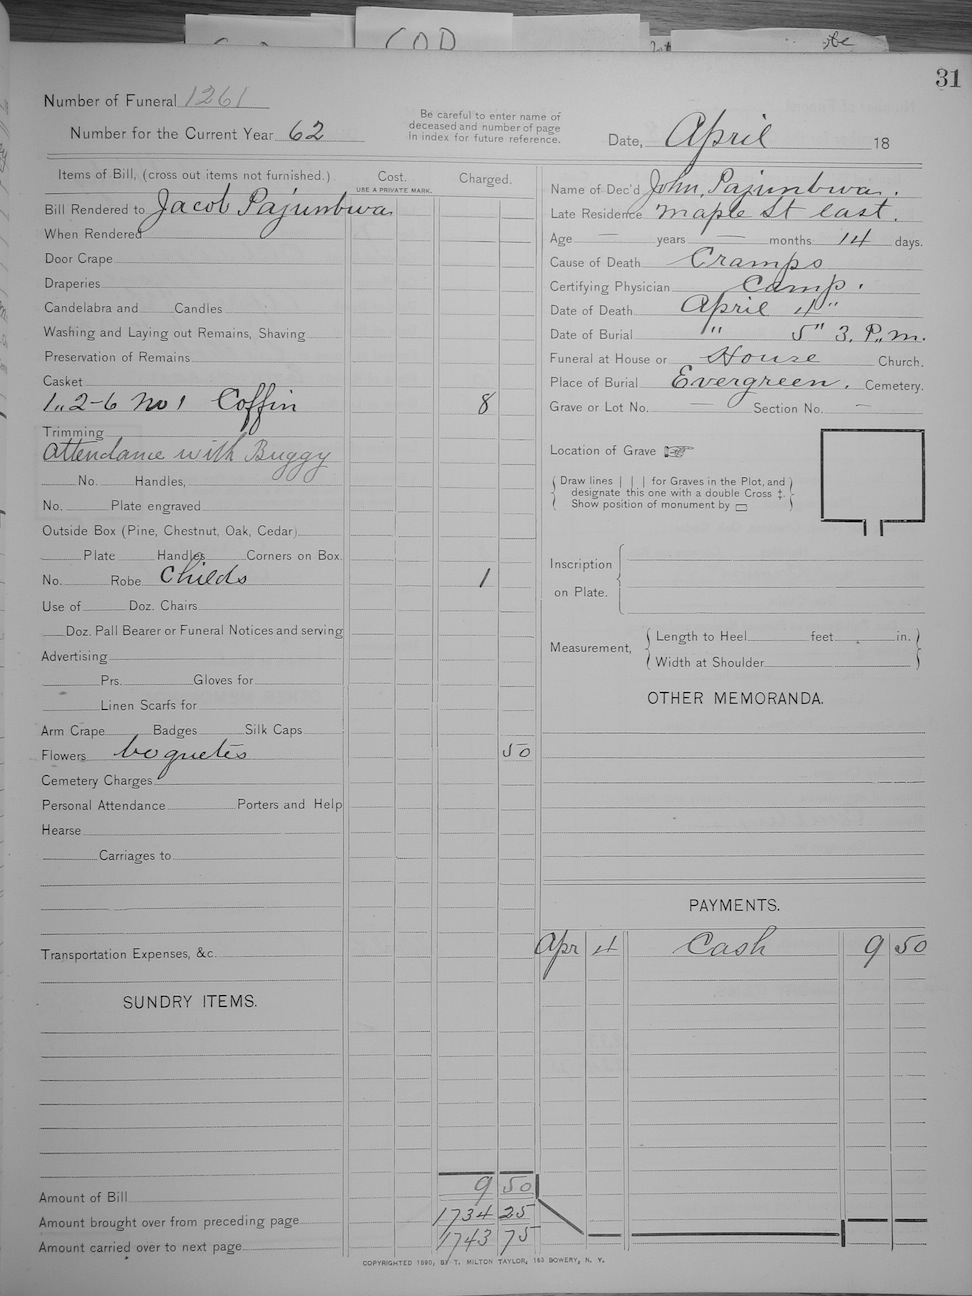 COD
31
Number of Funeral 1261
Number for the Current Year 62
Be careful to enter name of
deceased and number of page
in index for future reference.
Date, April 18
Items of Bill, (cross out items not furnished.)
Cost.
USE A PRIVATE MARK.
Charged.
Bill Rendered to Jacob Pajunbwa
When Rendered
Door Crape
Draperies
Candelabra and Candles
Washing and Laying out Remains, Shaving
Preservation of Remains
Casket
1,, 2-6 No 1 Coffin 8
Trimming
Attendance with Buggy
No. Handles,
No. Plate engraved
Outside Box (Pine, Chestnut, Oak, Cedar)
Plate Handles Corners on Box.
No. Robe Childs 1
Use of Doz. Chairs
Doz. Pall Bearer or Funeral Notices and serving
Advertising
Prs. Gloves for
Linen Scarfs for
Arm Crape Badges Silk Caps
Flowers boquetes 50
Cemetery Charges
Personal Attendance Porters and Help
Hearse
Carriages to
Transportation Expenses, &c.
SUNDRY ITEMS.
Amount of Bill 9 50
Amount brought over from preceding page 1734 25
Amount carried over to next page 1743 75
Name of Dec'd John Pajunbwa.
Late Residence Maple St East.
Age — years — months 14 days.
Cause of Death Cramps
Certifying Physician Camp.
Date of Death April 4"
Date of Burial " 5" 3. P.M.
Funeral at House or House Church.
Place of Burial Evergreen. Cemetery.
Grave or Lot No. — Section No. —
Location of Grave
Draw lines | | | for Graves in the Plot, and
designate this one with a double Cross ‡.
Show position of monument by ▭
Inscription
on Plate.
Measurement,
Length to Heel feet in.
Width at Shoulder
OTHER MEMORANDA.
PAYMENTS.
Apr 4 Cash 9 50
COPYRIGHTED 1890, BY T. MILTON TAYLOR, 153 BOWERY, N. Y.